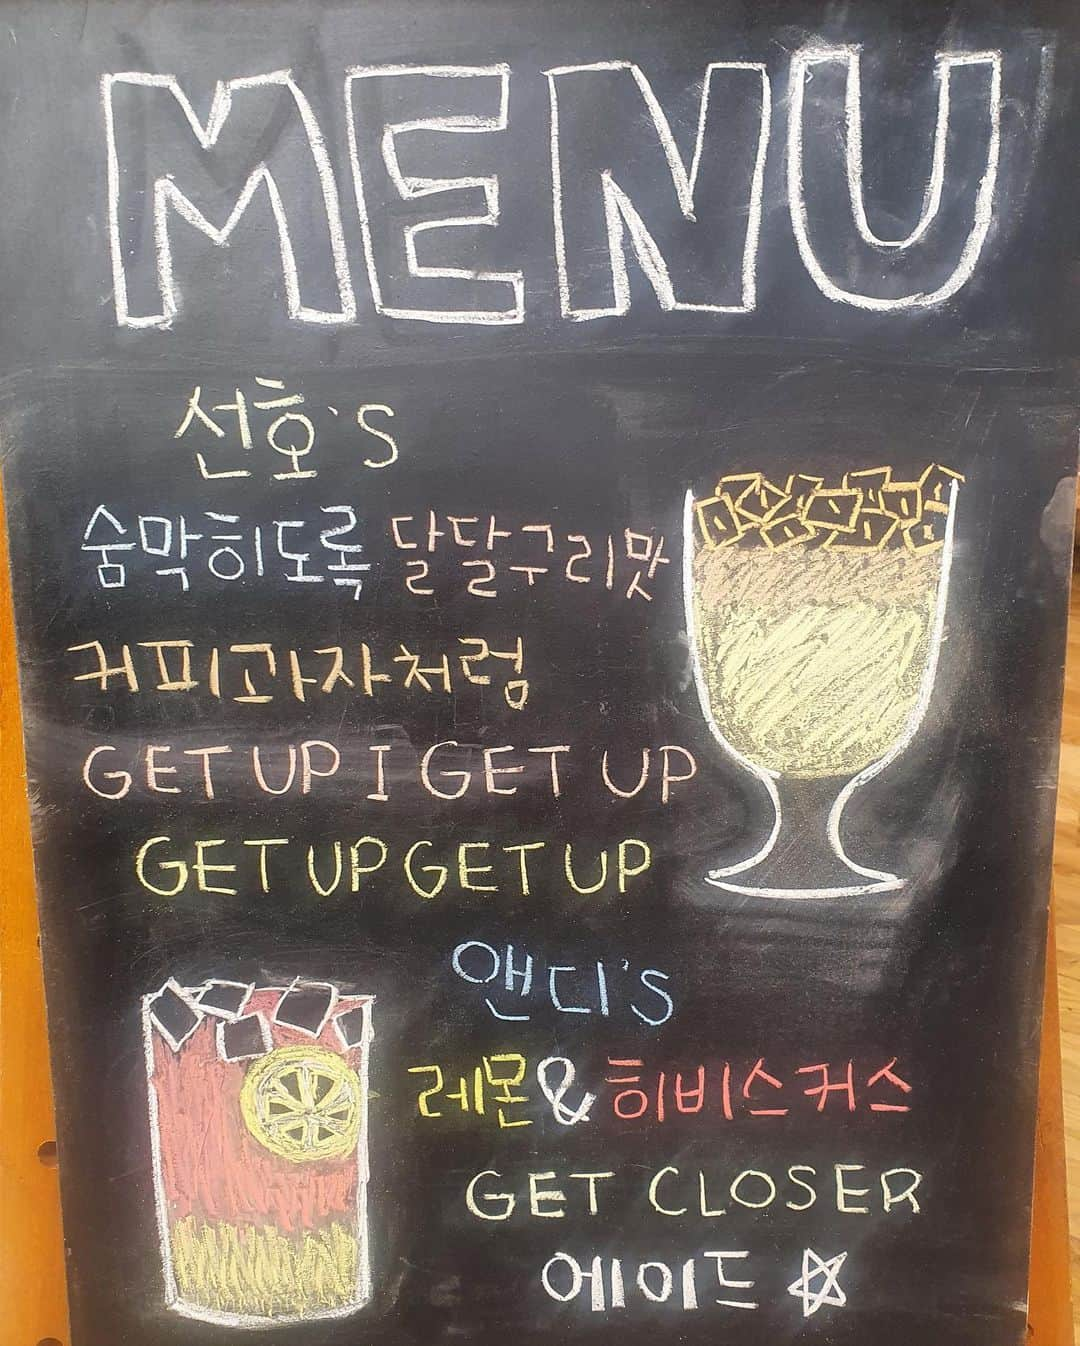 MENU
선호's
숨막히도록 달달구리맛
커피과자처럼
GET UP I GET UP
GET UP GET UP
앤디's
레몬&히비스커스
GET CLOSER
에이드